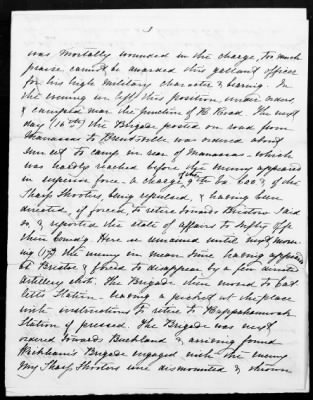 3
was mortally wounded in the charge, too much
praise cannot be awarded this gallant officer
for his high military character & bearing. In
the evening in left this position, under orders,
& camped near the junction of R Road. The next
day (16th) the Brigade posted on road from
Manassas to Brentsville was ordered about
sun set to camp in rear of Manassas - which
was hardly reached before the enemy appeared
in superior force. A charge of the 9th Va Cav & of the
Sharp Shooters, being repulsed, & having been
directed, if forced, to retire towards Bristow I did
so, & reported the state of affairs to
Here we remained until next morn-
ing (17) the enemy in mean time having appeared
at Bristoe & forced to disappear by a few
artillery shots. The Brigade then moved to Cat
letts Station - leaving a picket at the place
with instructions to retire to Rappahannock
Station if pressed. The Brigade was next
ordered towards Buckland & arriving found
Wickham's Brigade engaged with the enemy
My Sharp Shooters were dismounted & thrown